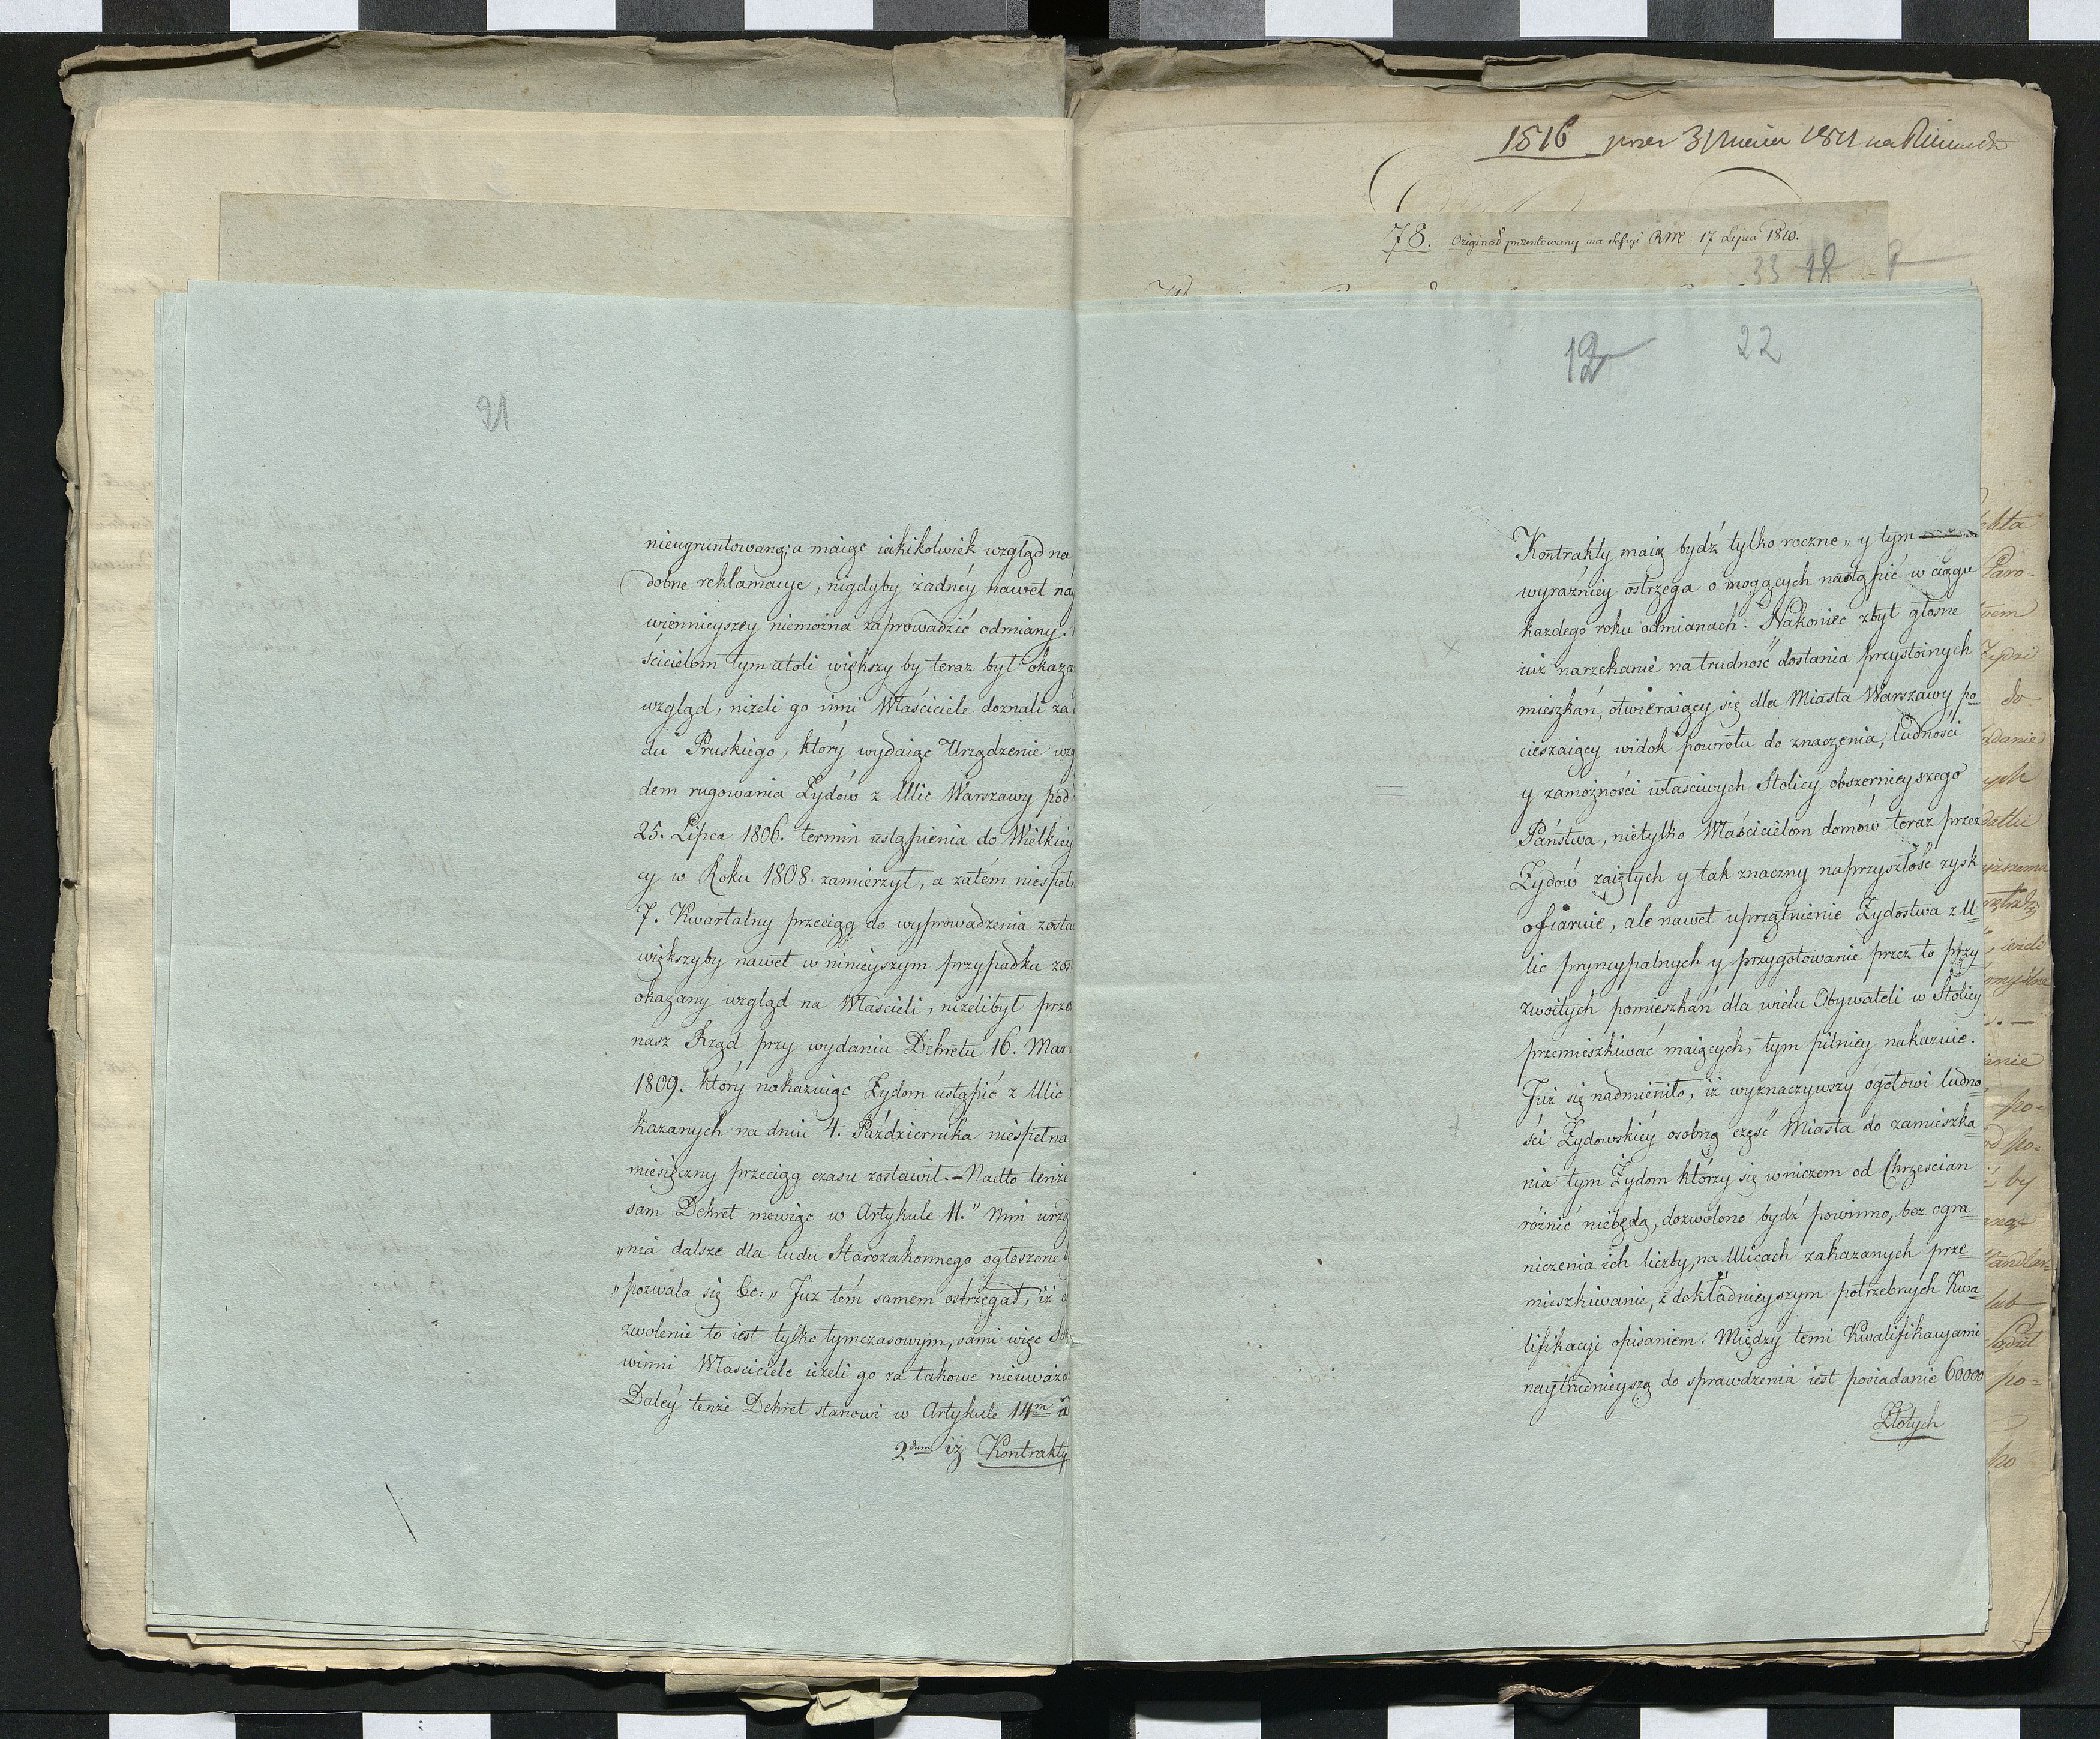 21
nieugruntowaną; a maiąc iakikolwiek wzgląd na
dobne reklamacye, nigdyby żadnéy nawet nay
winnieyszey niemożna zaprowadzić odmiany.
ścicielom tym atoli większy by teraz był okaza
wzgląd, niżeli go inni Właściciele doznali za
du Pruskiego, który wydaiąc Urządzenie wzg
dem rugowania Żydów z Ulic Warszawy pod
25. Lipca 1806. termin ustąpienia do Wielkiéy
cy w Roku 1808. zamierzył, a zatém niespełn
7. Kwartalny przeciąg do wyprowadzenia zosta
większyby nawet w ninieyszym przypadku zos
okazany wzgląd na Właścicieli, niżeli był prze
nasz Rząd przy wydaniu Dekretu 16. Mar
1809. który nakazuiąc Żydom ustąpić z Ulic
kazanych na dniu 4. Października niespełna
miesięczny przeciąg czasu zostawił. – Nadto tenże
sam Dekret mówiąc w Artykule 11." Nim urzą
„nia dalsze dla ludu Starozakonnego ogłoszone
„pozwala się &c: „ Już tém samem ostrzegał, iż
zwolenie to iest tylko tymczasowym, sami więc
winni Właściciele ieżeli go za takowe nieuważa
Daléy tenże Dekret stanowi w Artykule 14m ad
2dum iż Kontrakty
1816
78. Originał prezentowany na Sessyi RM. 17 Lipca 1810.
33 18
12 22
Kontrakty maią bydź tylko roczne „ y tym
wyraźniey ostrzega o mogących nastąpić w ciągu
każdego roku odmianach. Nakoniec zbyt głośne
iuż narzekanie na trudność dostania przystoinych
mieszkań, otwieraiący się dla Miasta Warszawy po
cieszaiący widok powrotu do znaczenia, ludności
y zamożności właściwych Stolicy obszernieyszego
Państwa, nietylko Właścicielom domów teraz przez
Żydów zaiętych y tak znaczny naprzyszłość zysk
ofiaruie, ale nawet uprzątnienie Żydostwa z U=
lic pryncypalnych y przygotowanie przez to przy
zwoitych pomieszkań dla wielu Obywateli w Stolicy
przemieszkiwać maiących, tym pilniey nakazuie.
Już się nadmieniło, iż wyznaczywszy ogółowi ludno
ści Żydowskiéy osobną część Miasta do zamieszka=
nia tym Żydom którzy się w niczem od Chrześcian
różnić niebędą, dozwolono bydź powinno, bez ogra=
niczenia ich liczby, na Ulicach zakazanych prze=
mieszkiwanie, z dokładnieyszym potrzebnych Kwa=
lifikacyi opisaniem. Między temi Kwalifikacyami
naytrudnieyszą do sprawdzenia iest posiadanie 60000
Złotych